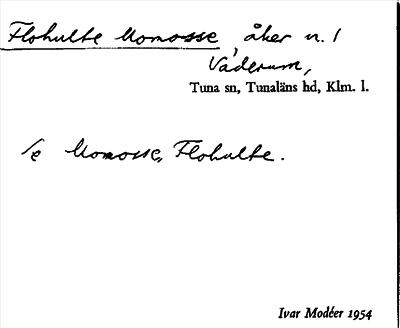 Flohulte Momosse, åker n. 1
Väderum,
Tuna sn, Tunaläns hd, Klm. l.
/e Momosse, Flohulte.
Ivar Modéer 1954